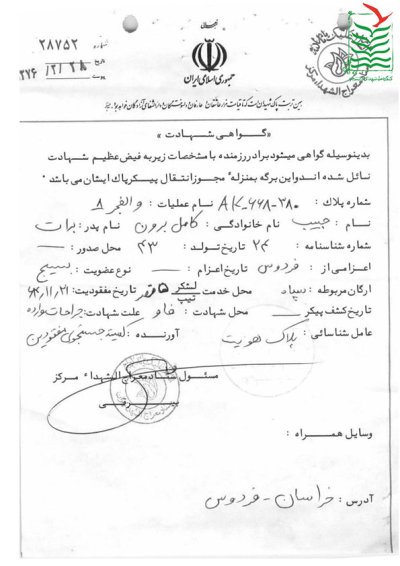 شماره ۲۸۷۵۲
تاریخ ۳۷۶/۲/۲۸
پیوست
جمهوری اسلامی ایران
« گواهی شهادت »
بدینوسیله گواهی میشود برادر رزمنده با مشخصات زیر به فیض عظیم شهادت
نائل شده اند و این برگه بمنزله "مجوز انتقال پیکر پاک ایشان می باشد"
شماره پلاک : AK-668-380 نام عملیات : والفجر ۸
نام : حبیب نام خانوادگی : کامل برون نام پدر : برات
شماره شناسنامه : ۲۴ تاریخ تولد : ۴۳ محل صدور : —
اعزامی از : فردوس تاریخ اعزام : — نوع عضویت : بسیج
ارگان مربوطه : سپاه محل خدمت لشکر تیپ تاریخ مفقودیت : ۶۴،۱۱،۲۱
تاریخ کشف پیکر — محل شهادت : فاو علت شهادت : جراحات وارده
عامل شناسائی : پلاک هویت آورنده : کمیته جستجوی مفقودین
مسئول ستاد معراج الشهداء مرکز
وسایل همراه :
آدرس : خراسان - فردوس